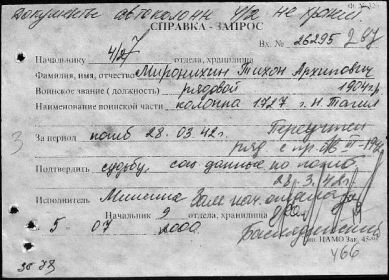 Документы автоколонн 4/2 не хранил
СПРАВКА - ЗАПРОС
Вх. № 26295 267
Начальнику 4/27 отдела, хранилища
Фамилия, имя, отчество Миронихин Тихон Архипович
Воинское звание (должность) рядовой 1904 г.р
Наименование воинской части колонна 1727 г. Н Тагил
3
За период погиб 28.03.42г.
Подтвердить судьбу, соц данные по погиб
28.3.42г.
Исполнитель Минина
Начальник 9 отдела, хранилища
5 07 2000
ЦАМО Зак. 43-98
466